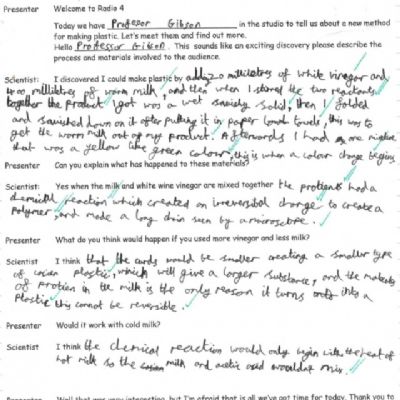 Presenter Welcome to Radio 4
Today we have Professor Gibson in the studio to tell us about a new method
for making plastic. Let's meet them and find out more.
Hello Professor Gibson. This sounds like an exciting discovery please describe the
process and materials involved to the audience.
Scientist: I discovered I could make plastic by adding 20 millilitres of white vinegar and
400 millilitres of warm milk, and then when I stired the two reactants
together the product I got was a wet squishy solid, then I folded
and squished down on it after putting it in paper towels, this was to
get the worm milk out of my product. Afterwards I had a mixture
that was a yellow like green colour, this is when a colour change begins
Presenter Can you explain what has happened to these materials?
Scientist: Yes when the milk and white wine vinegar are mixed together the protients had a
chemical reaction which created an irreversible change to create a
Polymer, and made a long chain seen by a microscope.
Presenter What do you think would happen if you used more vinegar and less milk?
Scientist I think that the curds would be smaller creating a smaller type
of plastic, which will give a larger substance, and the materials
of protien in the milk is the only reason it turns into a
Plastic this cannot be reversible.
Presenter Would it work with cold milk?
Scientist I think the chemical reaction would only begin with the heat of
hot milk so the milk and acetic used wouldnt mix.
Presenter Well that was very interesting, but I'm afraid that is all we've got time for today. Thank you to